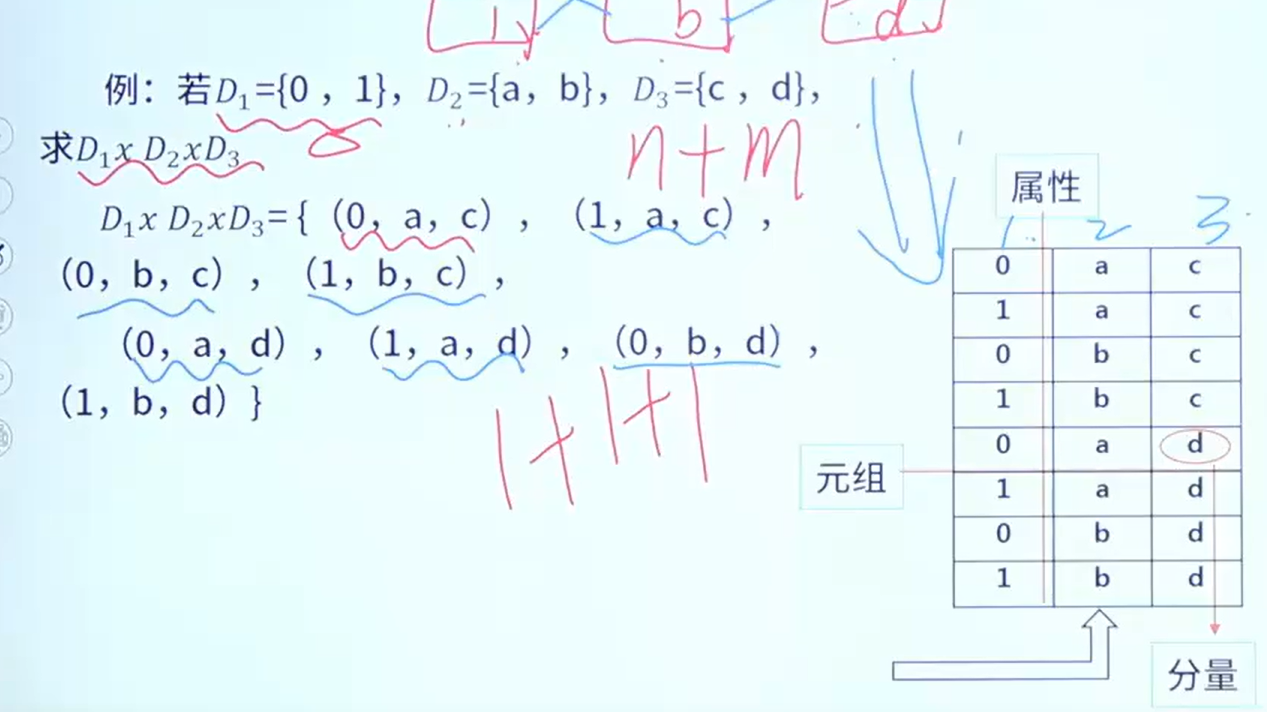 1 b d
例：若D₁={0 ，1}，D₂={a，b}，D₃={c ，d}，
求D₁x D₂xD₃
n+m
D₁x D₂xD₃={（0，a，c），（1，a，c），
（0，b，c），（1，b，c），
（0，a，d），（1，a，d），（0，b，d），
（1，b，d）}
1+1+1
属性
1 2 3
0 a c
1 a c
0 b c
1 b c
0 a d
元组
1 a d
0 b d
1 b d
分量